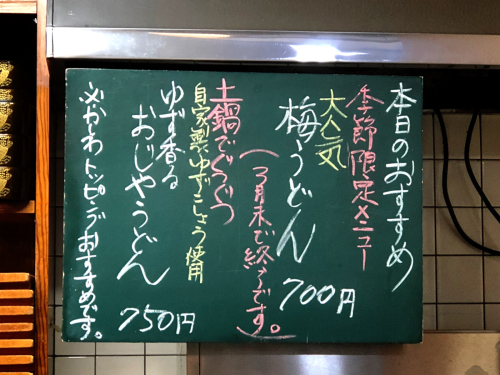 本日のおすすめ
季節限定メニュー
大人気
梅うどん 700円
(3月末で終了です。)
土鍋でぐつぐつ
自家製ゆずこしょう使用
ゆず香る
おじやうどん 750円
※かしわトッピングおすすめです。